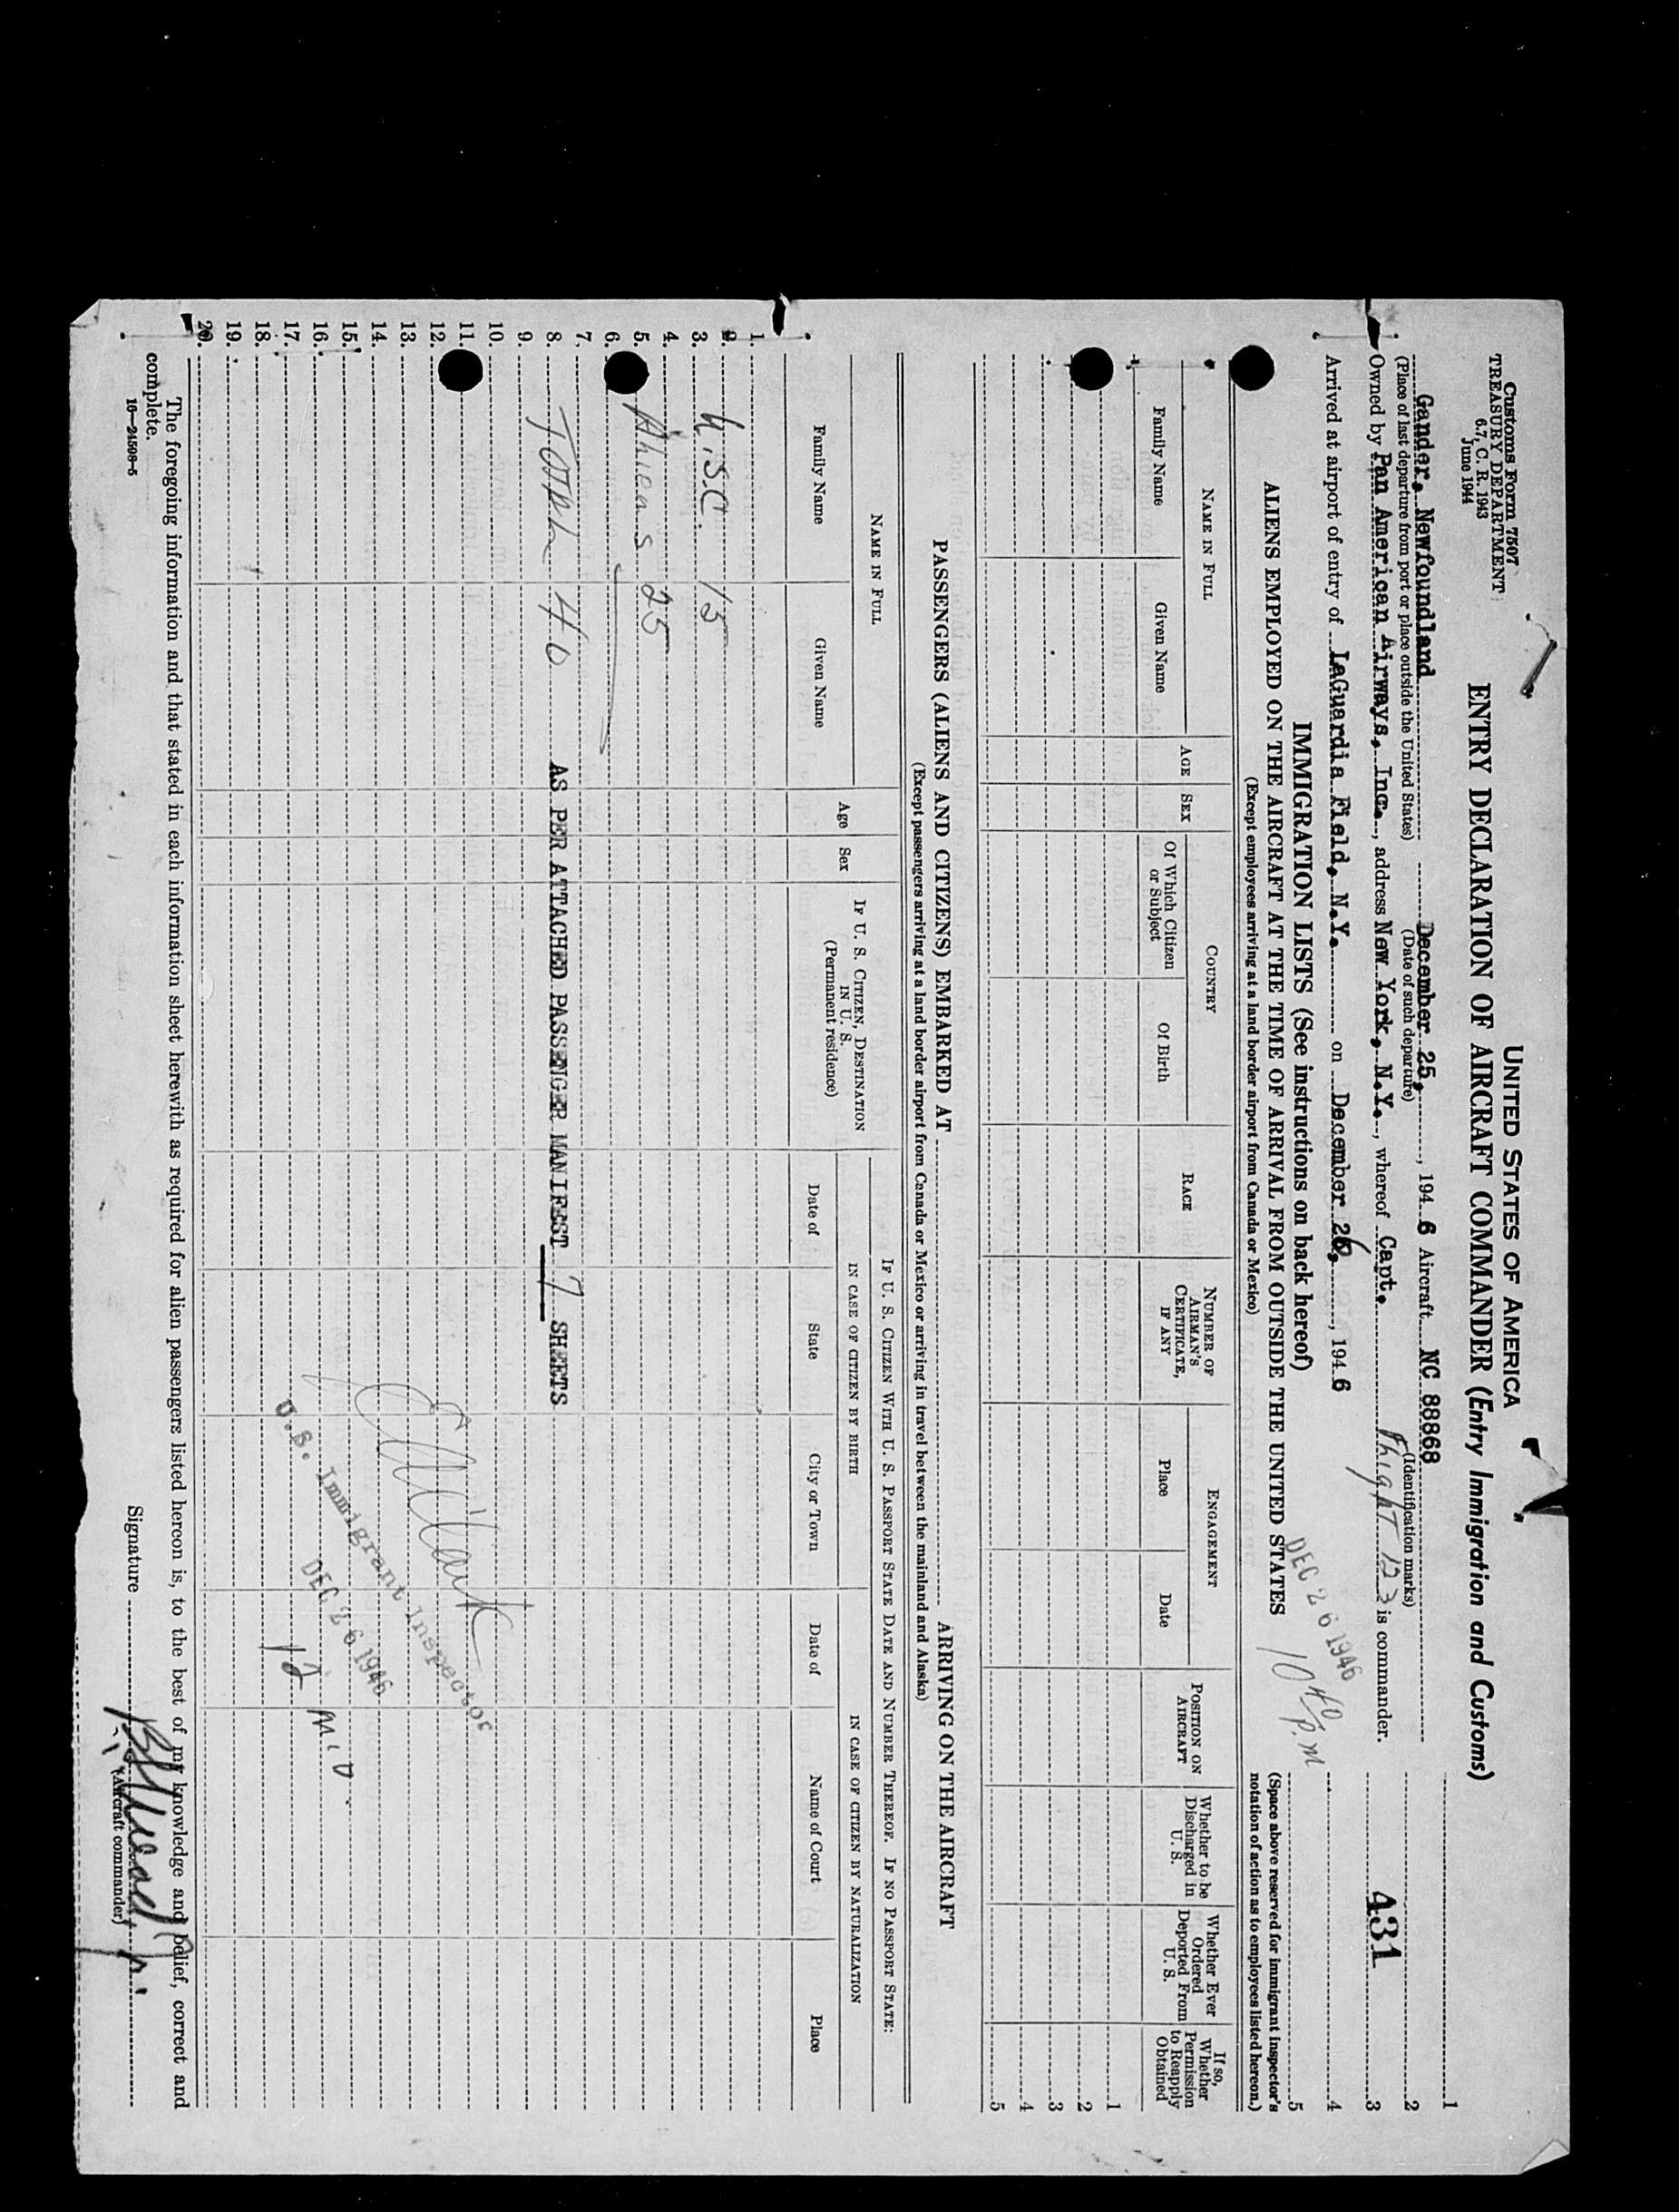 Customs Form 7507
TREASURY DEPARTMENT
6.7, C. R. 1943
June 1944
UNITED STATES OF AMERICA
ENTRY DECLARATION OF AIRCRAFT COMMANDER (Entry Immigration and Customs)
Gander, Newfoundland December 25, 1946 Aircraft NC 88868
(Place of last departure from port or place outside the United States) (Date of such departure) (Identification marks)
Owned by Pan American Airways, Inc., address New York, N.Y., whereof Capt. Flight 123 is commander.
Arrived at airport of entry of LaGuardia Field, N.Y. on December 26, 1946
DEC 26 1946
10 40 P.M
431
1
2
3
4
5
IMMIGRATION LISTS (See instructions on back hereof)
ALIENS EMPLOYED ON THE AIRCRAFT AT THE TIME OF ARRIVAL FROM OUTSIDE THE UNITED STATES
(Except employees arriving at a land border airport from Canada or Mexico)
(Space above reserved for immigrant inspector's notation of action as to employees listed hereon.)
NAME IN FULL
Family Name
Given Name
AGE
SEX
COUNTRY
Of Which Citizen or Subject
Of Birth
RACE
NUMBER OF AIRMAN'S CERTIFICATE, IF ANY
ENGAGEMENT
Place
Date
POSITION ON AIRCRAFT
Whether to be Discharged in U. S.
Whether Ever Ordered Deported From U. S.
If so, Whether Permission to Reapply Obtained
1
2
3
4
5
PASSENGERS (ALIENS AND CITIZENS) EMBARKED AT ARRIVING ON THE AIRCRAFT
(Except passengers arriving at a land border airport from Canada or Mexico or arriving in travel between the mainland and Alaska)
NAME IN FULL
Family Name
Given Name
Age
Sex
IF U. S. CITIZEN, DESTINATION IN U. S.
(Permanent residence)
IF U. S. CITIZEN WITH U. S. PASSPORT STATE DATE AND NUMBER THEREOF. IF NO PASSPORT STATE:
IN CASE OF CITIZEN BY BIRTH
IN CASE OF CITIZEN BY NATURALIZATION
Date of
State
City or Town
Date of
Name of Court
Place
1.
2.
3. U.S.C. 15
4.
5. Aliens 25
6.
7.
8. TOTAL 40 AS PER ATTACHED PASSENGER MANIFEST 7 SHEETS
9.
10.
11.
12.
13.
14.
15.
16.
17.
18.
19.
20.
U.S. Immigrant Inspector
DEC 26 1946
12 M.D.
The foregoing information and that stated in each information sheet herewith as required for alien passengers listed hereon is, to the best of my knowledge and belief, correct and
complete.
16—24508-5
Signature
(Aircraft commander)